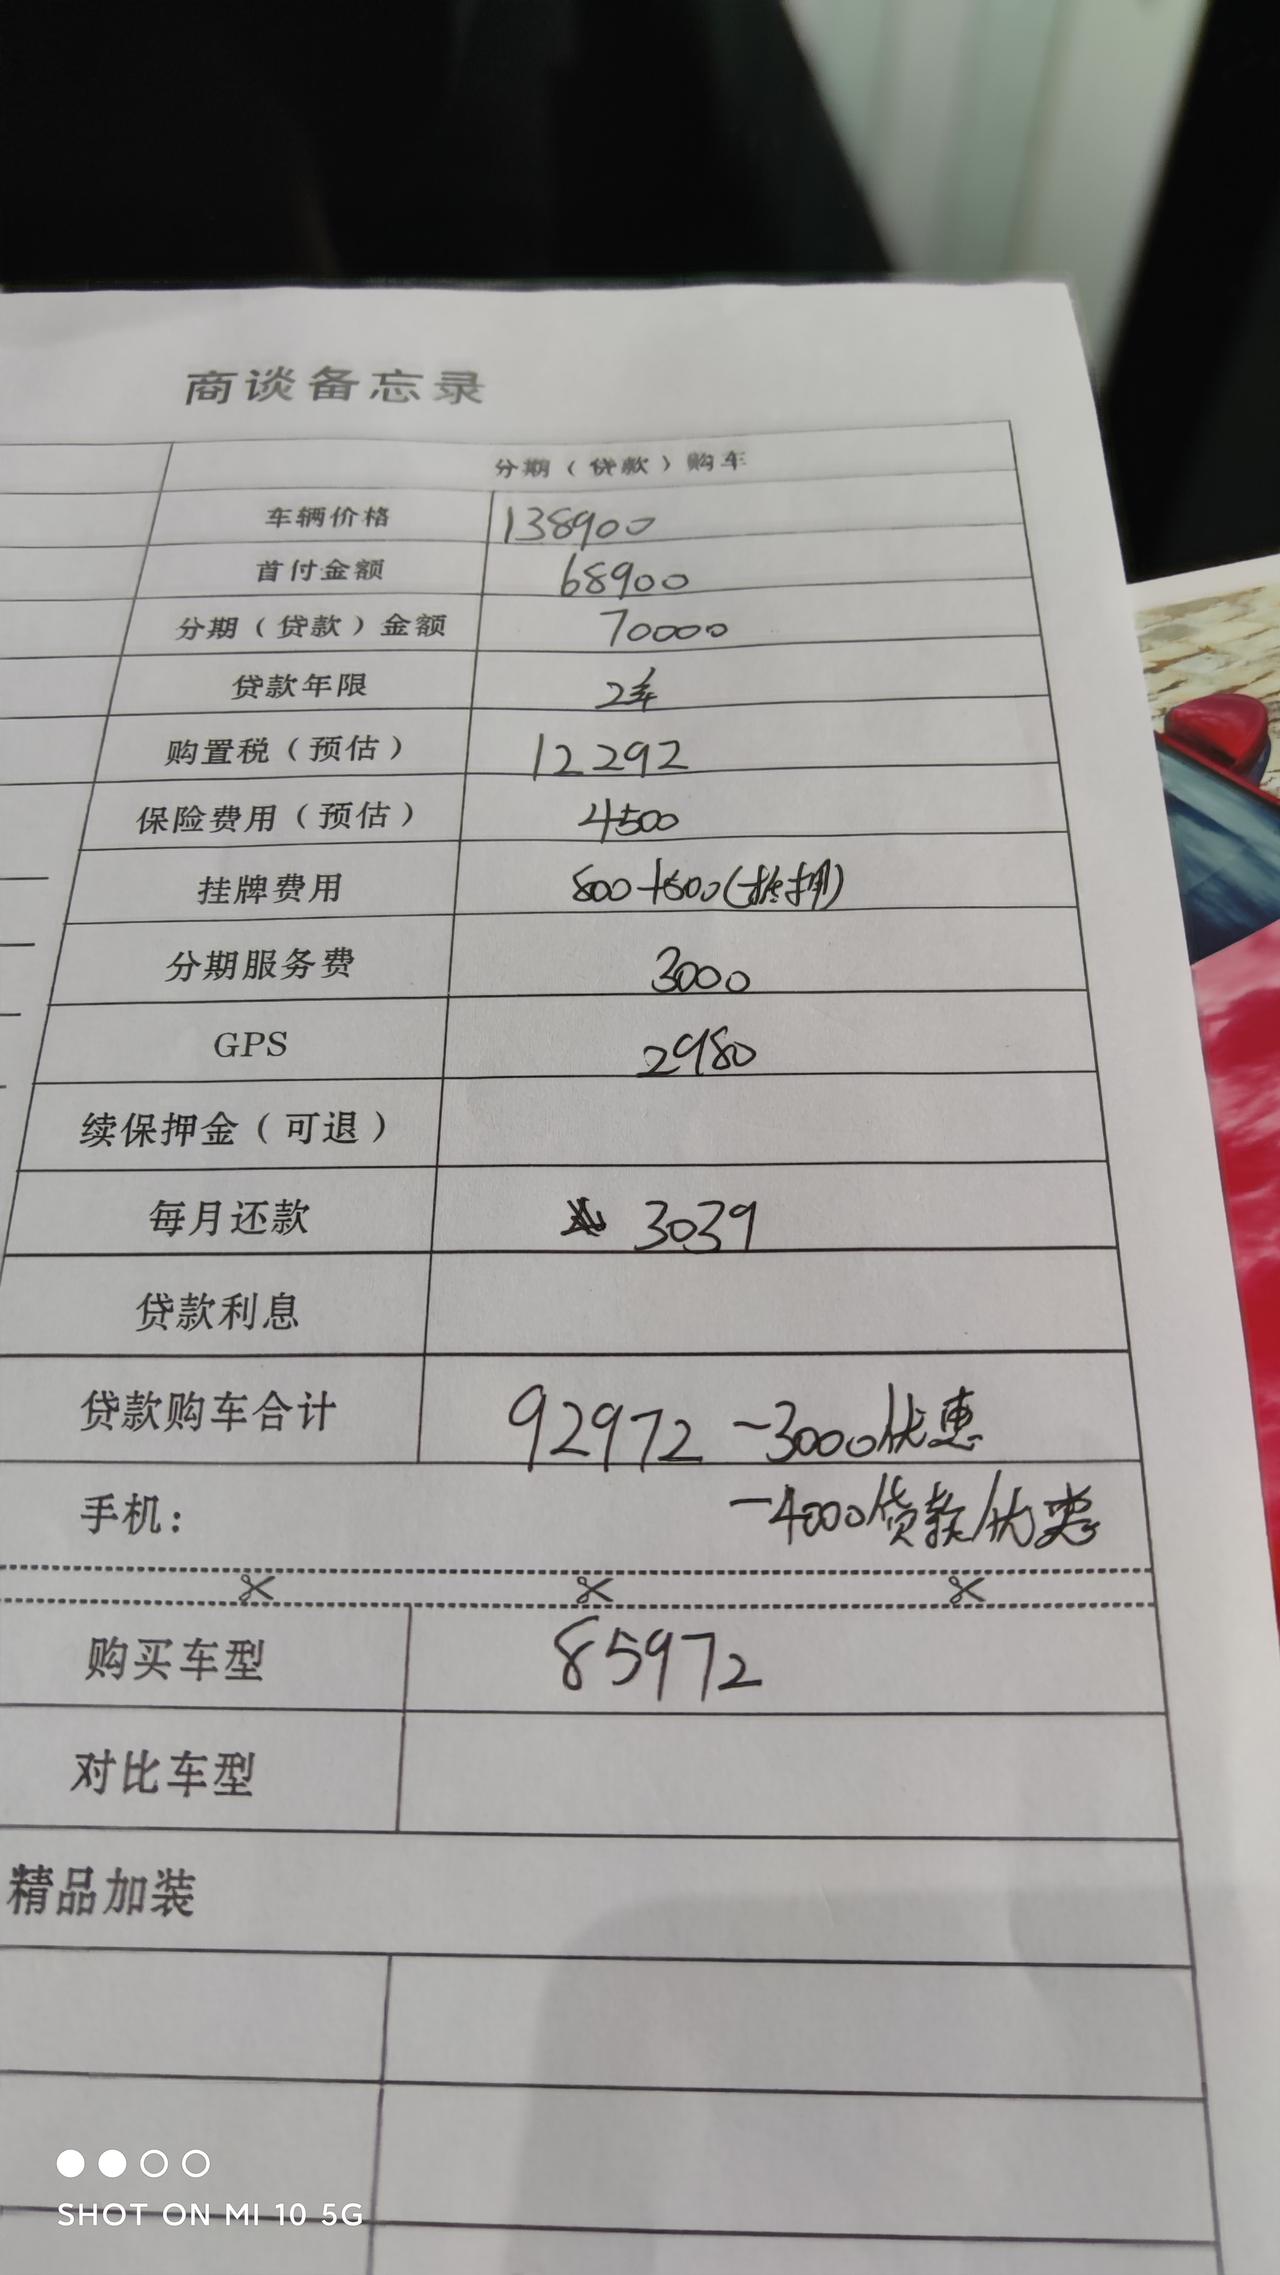 商谈备忘录
分期（贷款）购车
车辆价格 138900
首付金额 68900
分期（贷款）金额 70000
贷款年限 2年
购置税（预估） 12292
保险费用（预估） 4500
挂牌费用 800+500(抵押)
分期服务费 3000
GPS 2980
续保押金（可退）
每月还款 3039
贷款利息
贷款购车合计 92972 -3000优惠
手机： -4000贷款优惠
购买车型 85972
对比车型
精品加装
SHOT ON MI 10 5G